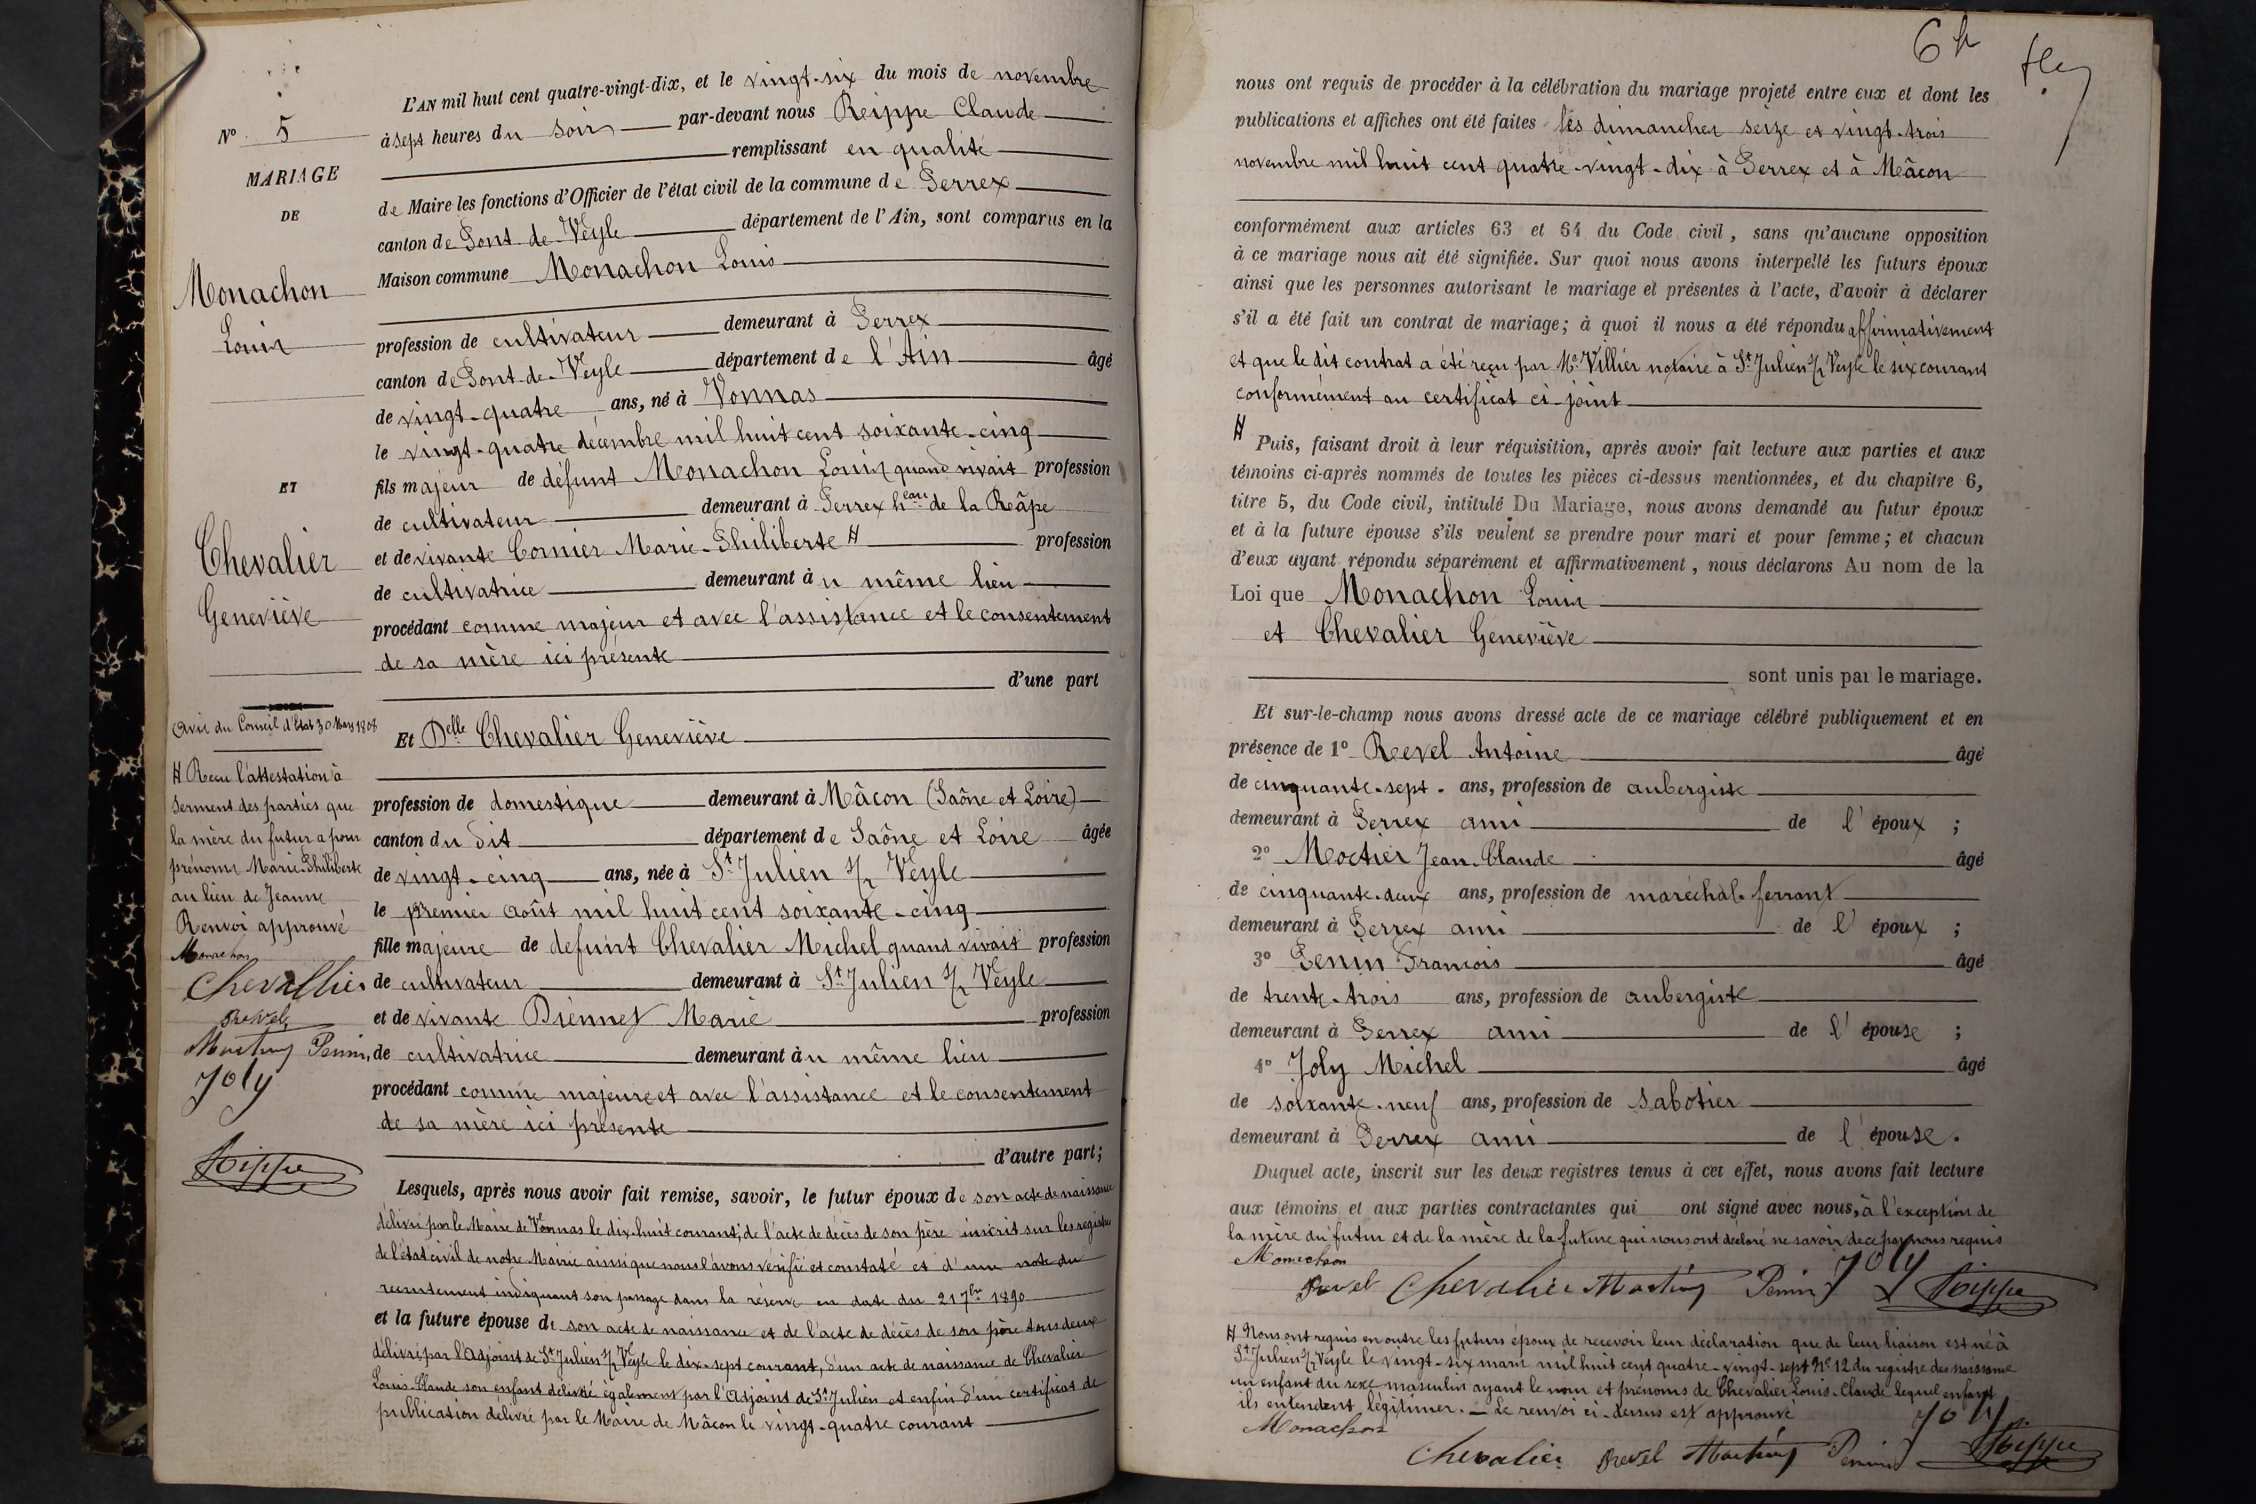 N° 5
MARIAGE
DE
Monachon
Louis
ET
Chevalier
Geneviève
Avis du Conseil d'Etat 30 Mars 1808
H Reçu l'attestation à
serment des parties que
la mère du futur a pour
prénoms Marie-Philiberte
au lieu de Jeanne
Renvoi approuvé
Monachon
Chevallier
Revel
Penin
Joly
Reippe
L'AN mil huit cent quatre-vingt-dix, et le vingt-six du mois de novembre
à sept heures du soir par-devant nous Reippe Claude
remplissant en qualité
de Maire les fonctions d'Officier de l'état civil de la commune de Perrex
canton de Pont-de-Veyle département de l'Ain, sont comparus en la
Maison commune Monachon Louis
profession de cultivateur demeurant à Perrex
canton de Pont-de-Veyle département de l'Ain âgé
de vingt-quatre ans, né à Vonnas
le vingt-quatre décembre mil huit cent soixante-cinq
fils majeur de défunt Monachon Louis quand vivait profession
de cultivateur demeurant à Perrex heau de la Râpe
et de vivante Cornier Marie-Philiberte H profession
de cultivatrice demeurant au même lieu
procédant comme majeur et avec l'assistance et le consentement
de sa mère ici présente
d'une part
Et Delle Chevalier Geneviève
profession de domestique demeurant à Mâcon (Saône et Loire)
canton du dit département de Saône et Loire âgée
de vingt-cinq ans, née à St Julien s/ Veyle
le premier août mil huit cent soixante-cinq
fille majeure de défunt Chevalier Michel quand vivait profession
de cultivateur demeurant à St Julien s/ Veyle
et de vivante Diennet Marie profession
de cultivatrice demeurant au même lieu
procédant comme majeure et avec l'assistance et le consentement
de sa mère ici présente
d'autre part;
Lesquels, après nous avoir fait remise, savoir, le futur époux de son acte de naissance
délivré par le Maire de Vonnas le dix-huit courant, de l'acte de décès de son père inscrit sur les registres
de l'état civil de notre Mairie ainsi que nous l'avons vérifié et constaté et d'une note du
recrutement indiquant son passage dans la réserve en date du 21 7bre 1890
et la future épouse de son acte de naissance et de l'acte de décès de son père tous deux
délivrés par l'Adjoint de St Julien s/ Veyle le dix-sept courant, d'un acte de naissance de Chevalier
Louis-Claude son enfant délivré également par l'Adjoint de St Julien et enfin d'un certificat de
publication délivré par le Maire de Mâcon le vingt-quatre courant
nous ont requis de procéder à la célébration du mariage projeté entre eux et dont les
publications et affiches ont été faites les dimanches seize et vingt-trois
novembre mil huit cent quatre-vingt-dix à Perrex et à Mâcon
conformément aux articles 63 et 64 du Code civil, sans qu'aucune opposition
à ce mariage nous ait été signifiée. Sur quoi nous avons interpellé les futurs époux
ainsi que les personnes autorisant le mariage et présentes à l'acte, d'avoir à déclarer
s'il a été fait un contrat de mariage; à quoi il nous a été répondu affirmativement
et que le dit contrat a été reçu par Me Villier notaire à St Julien s/ Veyle le six courant
conformément au certificat ci-joint
H
Puis, faisant droit à leur réquisition, après avoir fait lecture aux parties et aux
témoins ci-après nommés de toutes les pièces ci-dessus mentionnées, et du chapitre 6,
titre 5, du Code civil, intitulé Du Mariage, nous avons demandé au futur époux
et à la future épouse s'ils veulent se prendre pour mari et pour femme; et chacun
d'eux ayant répondu séparément et affirmativement, nous déclarons Au nom de la
Loi que Monachon Louis
et Chevalier Geneviève
sont unis par le mariage.
Et sur-le-champ nous avons dressé acte de ce mariage célébré publiquement et en
présence de 1° Revel Antoine âgé
de cinquante-sept ans, profession de aubergiste
demeurant à Perrex ami de l'époux ;
2° Jean-Claude âgé
de cinquante-deux ans, profession de maréchal-ferrant
demeurant à Perrex ami de l'époux ;
3° Penin François âgé
de trente-trois ans, profession de aubergiste
demeurant à Perrex ami de l'épouse ;
4° Joly Michel âgé
de soixante-neuf ans, profession de sabotier
demeurant à Perrex ami de l'épouse.
Duquel acte, inscrit sur les deux registres tenus à cet effet, nous avons fait lecture
aux témoins et aux parties contractantes qui ont signé avec nous, à l'exception de
la mère du futur et de la mère de la future qui nous ont déclaré ne savoir de ce par nous requis
Monachon
Revel Chevalier Penin Joly Reippe
H Nous ont requis en outre les futurs époux de recevoir leur déclaration que de leur liaison est né à
St Julien s/ Veyle le vingt-six mars mil huit cent quatre-vingt-sept N° 12 du registre des naissances
un enfant du sexe masculin ayant le nom et prénoms de Chevalier Louis-Claude lequel enfant
ils entendent légitimer. Le renvoi ci-dessus est approuvé
Monachon
Joly
Chevalier Revel Penin Reippe